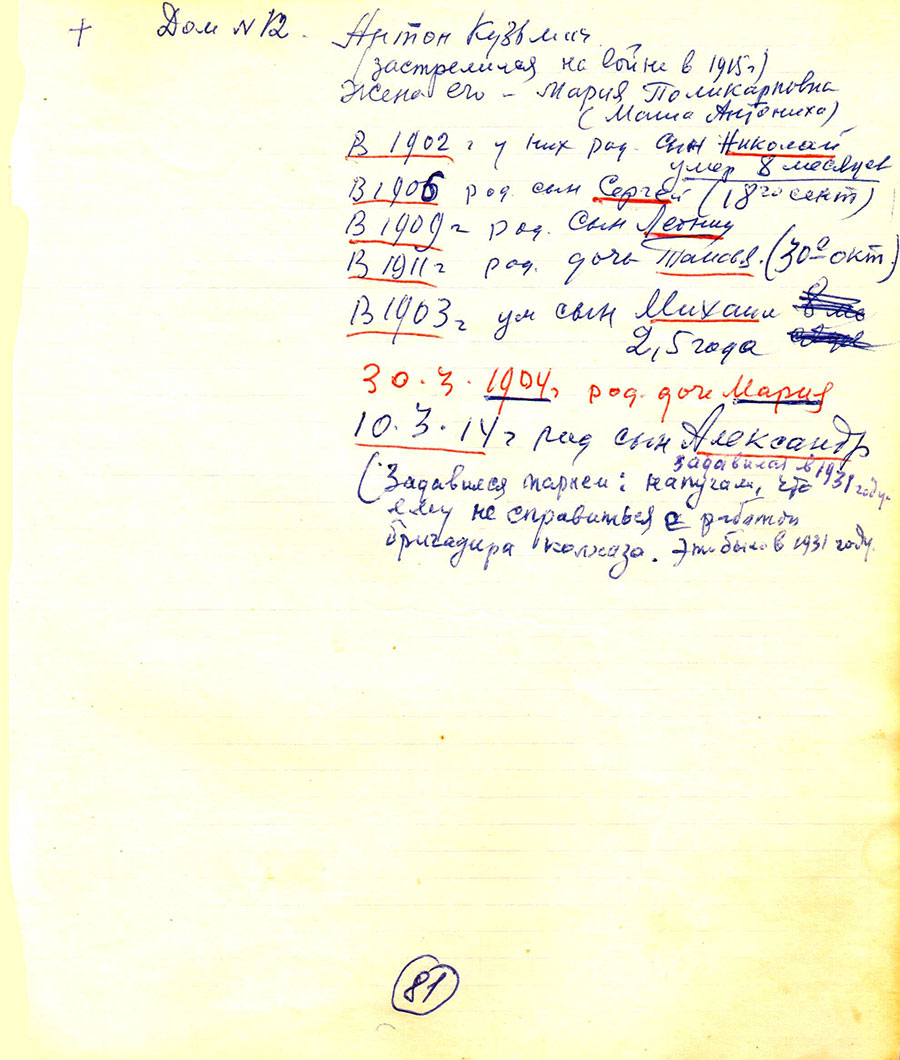 + Дом N 12. Антон Кузьмич
(застрелился на войне в 1915г)
Жена его – Мария Поликарповна
(Маша Антониха)
В 1902 г у них род. сын Николай
умер 8 месяцев
В 1906 род. сын Сергей (18го сент)
В 1909 г род. сын Леонид
В 1911 г род. дочь Таисья. (30го окт.)
В 1903 г ум сын Михаил
2,5 года
30.3.1904 г род. доч Мария
10.3.14 г род сын Александр
задавился в 1931 году.
(Задавился парнем: напугали, что
ему не справиться с работой
бригадира колхоза. Это было в 1931 году.
81